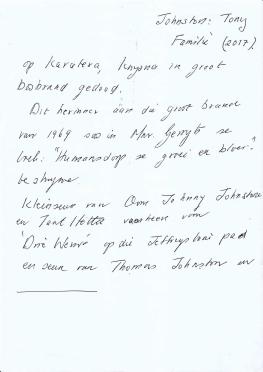 Johnston: Tony
Familie (2017).
op Karatara, Knysna in groot
bosbrand gedood.
Dit herinner aan die groot brande
van 1969 soos in Mnr. se
"Humansdorp se groei en bloei"
beskrywe
Kleinseun van Oom Johnny Johnston
en Tant Hetta van
Drie Weivé op die Jeffreysbaai pad
en seun van Thomas Johnston en